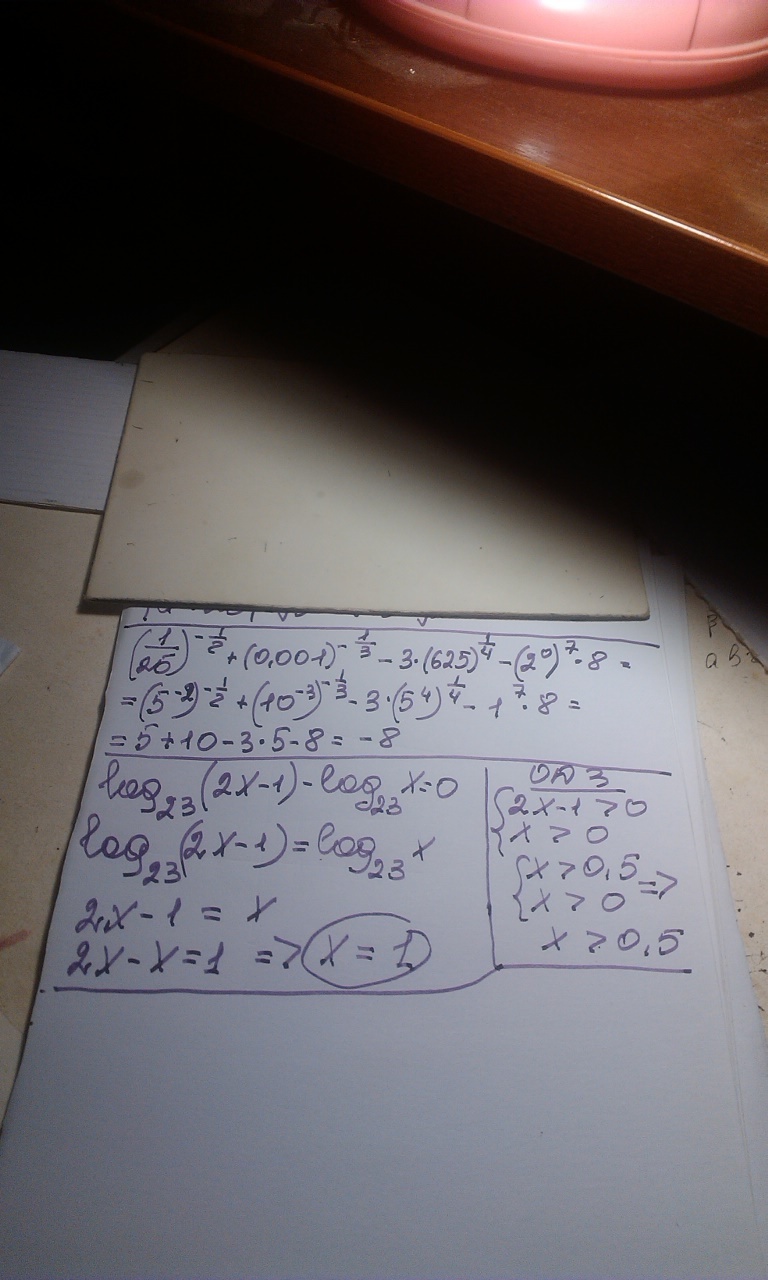 (1/25)^(-1/2) + (0,001)^(-1/3) - 3·(625)^(1/4) - (2⁰)⁷·8 =
= (5⁻²)^(-1/2) + (10⁻³)^(-1/3) - 3·(5⁴)^(1/4) - 1⁷·8 =
= 5+10-3·5-8 = -8
log₂₃(2x-1) - log₂₃ x = 0
log₂₃(2x-1) = log₂₃ x
2x-1 = x
2x-x=1 => x = 1
ОДЗ
{2x-1 > 0
{x > 0
{x > 0,5 =>
{x > 0
x > 0,5